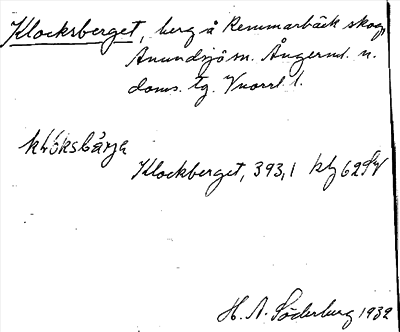 Klocksberget, berg å Remmarbäck skog,
Anundsjö sn. Ångerml. n.
doms. tg. Vnorrl. l.
Klockberget, 393,1 kbl 62
H. A. Söderberg 1932